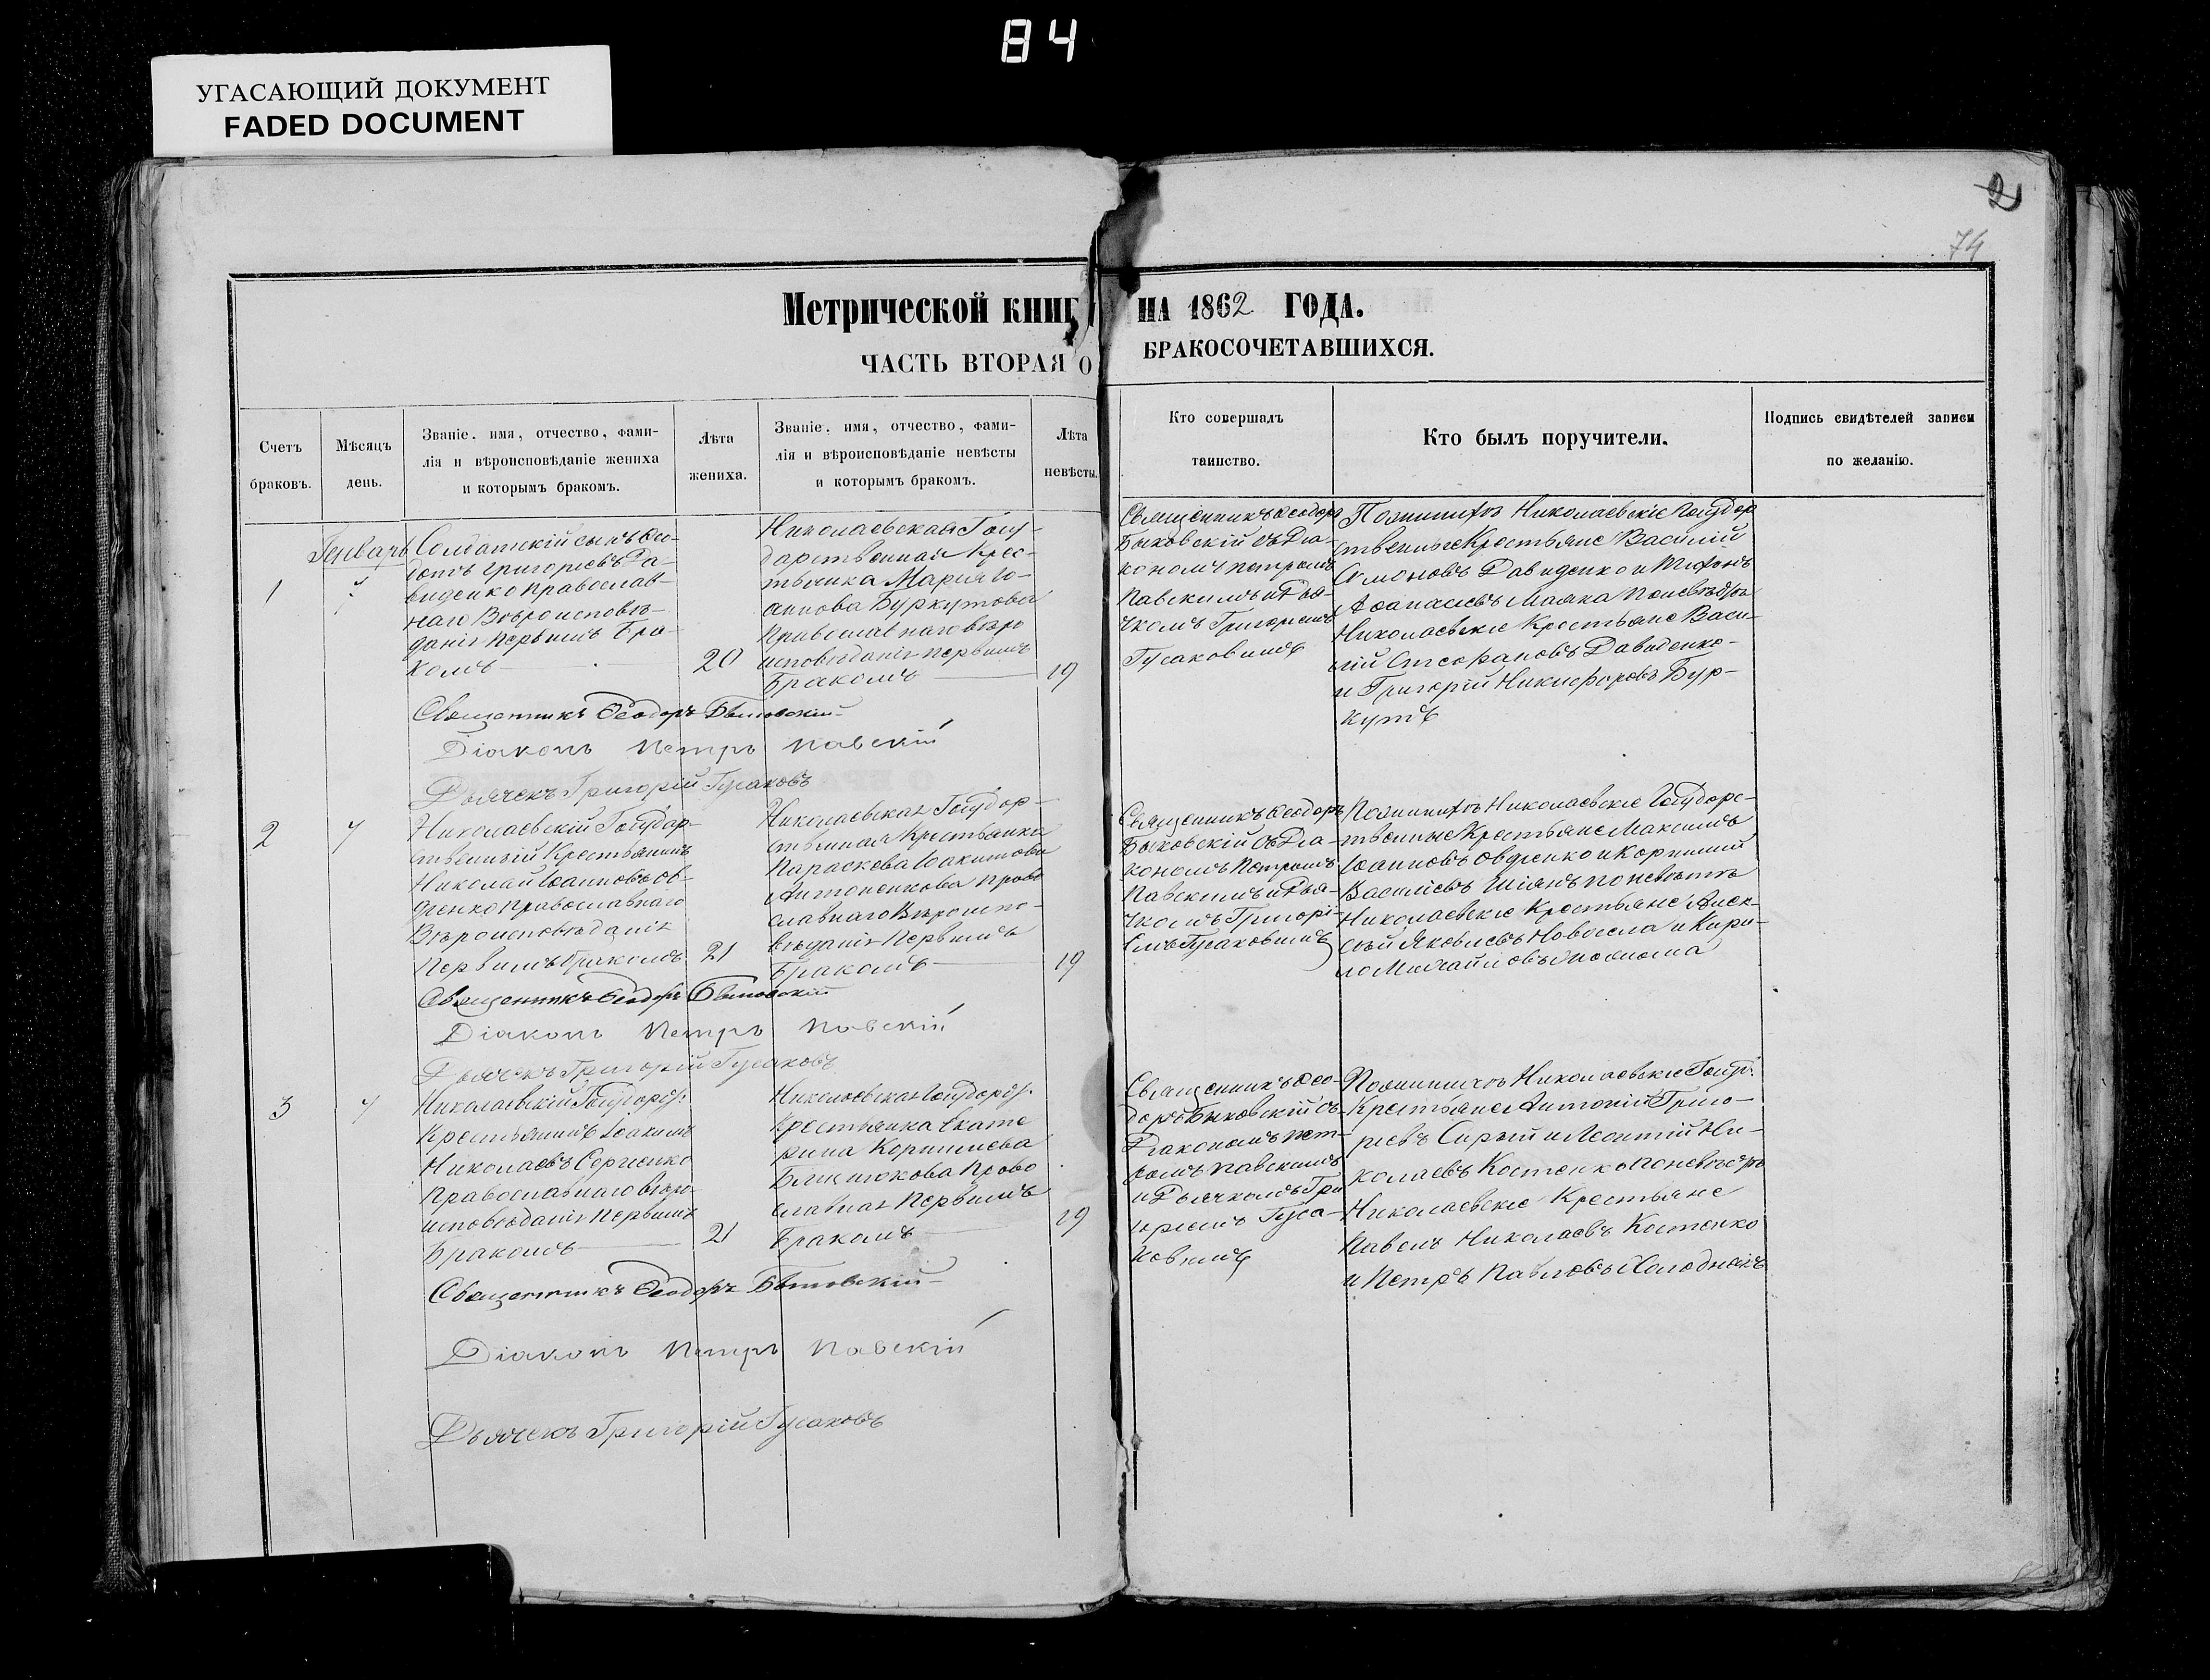 84
УГАСАЮЩИЙ ДОКУМЕНТ
FADED DOCUMENT
2
74
Метрической книг
на 1862 года.
ЧАСТЬ ВТОРАЯ О
БРАКОСОЧЕТАВШИХСЯ.
Счетъ
браковъ.
Мѣсяцъ
день.
Званіе, имя, отчество, фами-
лія и вѣроисповѣданіе жениха
и которымъ бракомъ.
Лѣта
жениха.
Званіе, имя, отчество, фами-
лія и вѣроисповѣданіе невѣсты
и которымъ бракомъ.
Лѣта
невѣсты.
Кто совершалъ
таинство.
Кто былъ поручители.
Подпись свидѣтелей записи
по желанію.
1
Генварь
7
Солдатскій сынъ
Григорьевъ Да-
виденко Православ-
наго Вѣроисповѣ-
данія первымъ бра-
комъ
20
Николаевская Госу-
дарственная Крес-
тьянка Марія Іо-
аннова Буркутова
Православнаго вѣро
исповѣданія первымъ
Бракомъ
19
Священникъ Ѳеодоръ
Быковскій съ Діа-
кономъ Петромъ
Павскимъ и Дья-
чкомъ Григоріемъ
Гусаковымъ
По женихѣ Николаевскіе Государ
ственные Крестьяне Василій
Давиденко и
Аѳанасіевъ Маяка по невѣстѣ
Николаевскіе Крестьяне Васи-
лій Стефановъ Давиденко
и Григорій Никифоровъ Бур-
кутъ
Священникъ Ѳеодоръ Быковскій
Діаконъ Петръ Павскій
Дьячекъ Григорій Гусаковъ
2
7
Николаевскій Государ-
ственный Крестьянинъ
Николай Іоанновъ Ов-
дѣенко Православнаго
Вѣроисповѣданія
Первымъ бракомъ
21
Николаевская Государ-
ственная Крестьянка
Параскева Іоакимова
Антоненкова Право
славнаго Вѣроиспо-
вѣданія Первымъ
Бракомъ
19
Священникъ Ѳеодоръ
Быковскій съ Діа-
кономъ Петромъ
Павскимъ и Дья-
чкомъ Григорі-
емъ Гусаковымъ
По женихѣ Николаевскіе Государс-
твенные Крестьяне Максимъ
Іоанновъ Овдѣенко и Корнилій
Василіевъ Шіянъ по невѣстѣ
Николаевскіе Крестьяне Алек-
сѣй Яковлевъ и Кири-
ло Михайловъ
Священникъ Ѳеодоръ Быковскій
Діаконъ Петръ Павскій
Дьячекъ Григорій Гусаковъ
3
7
Николаевскій Государ:
Крестьянинъ Іоакимъ
Николаевъ Сергіенко
Православнаго вѣро-
исповѣданія первымъ
Бракомъ
21
Николаевская Государ:
Крестьянка Екате
рина Корниліева
Право
славная Первымъ
Бракомъ
19
Священникъ Ѳео-
доръ Быковскій съ
Діакономъ Пет-
ромъ Павскимъ
и Дьячкомъ Гри
горіемъ Гуса-
ковымъ
По женихѣ Николаевскіе Госуд:
Крестьяне Антоній Григо-
ріевъ Сирый и Леонтій Ни-
колаевъ Костенко по невѣстѣ
Николаевскіе Крестьяне
Павелъ Николаевъ Костенко
и Петръ Павловъ Холоднякъ
Священникъ Ѳеодоръ Быковскій
Діаконъ Петръ Павскій
Дьячекъ Григорій Гусаковъ